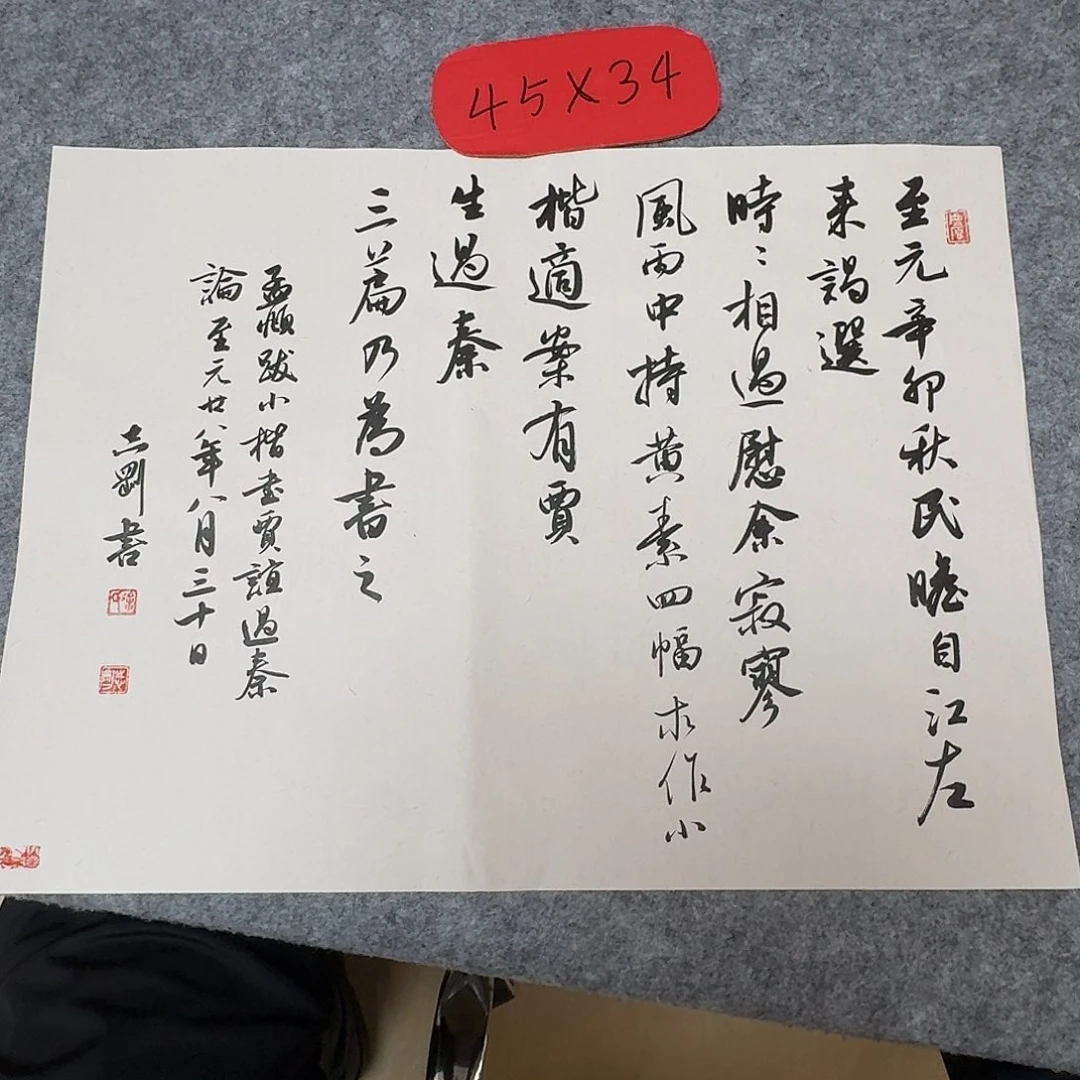 45X34
至元辛卯秋民瞻自江左
来謁選
時〻相過慰余寂寥
風雨中持黄素四幅求作小
楷適案有賈
生過秦
三篇乃為書之
孟頫跋小楷書賈誼過秦
論至元廿八年八月三十日
志剛書